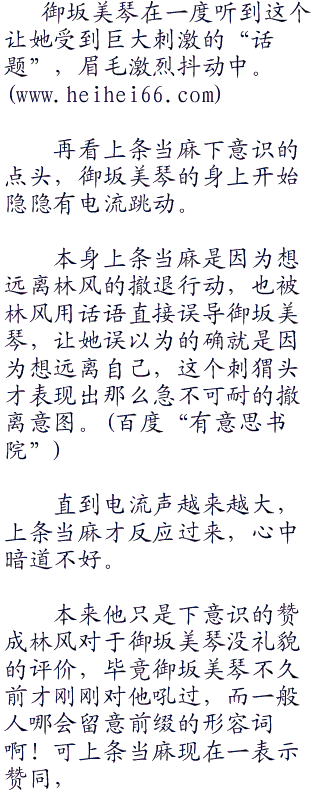 御坂美琴在一度听到这个
让她受到巨大刺激的“话
题”，眉毛激烈抖动中。
(www.heihei66.com)
再看上条当麻下意识的
点头，御坂美琴的身上开始
隐隐有电流跳动。
本身上条当麻是因为想
远离林风的撤退行动，也被
林风用话语直接误导御坂美
琴，让她误以为的确就是因
为想远离自己，这个刺猬头
才表现出那么急不可耐的撤
离意图。(百度“有意思书
院”)
直到电流声越来越大，
上条当麻才反应过来，心中
暗道不好。
本来他只是下意识的赞
成林风对于御坂美琴没礼貌
的评价，毕竟御坂美琴不久
前才刚刚对他吼过，而一般
人哪会留意前缀的形容词
啊！可上条当麻现在一表示
赞同，